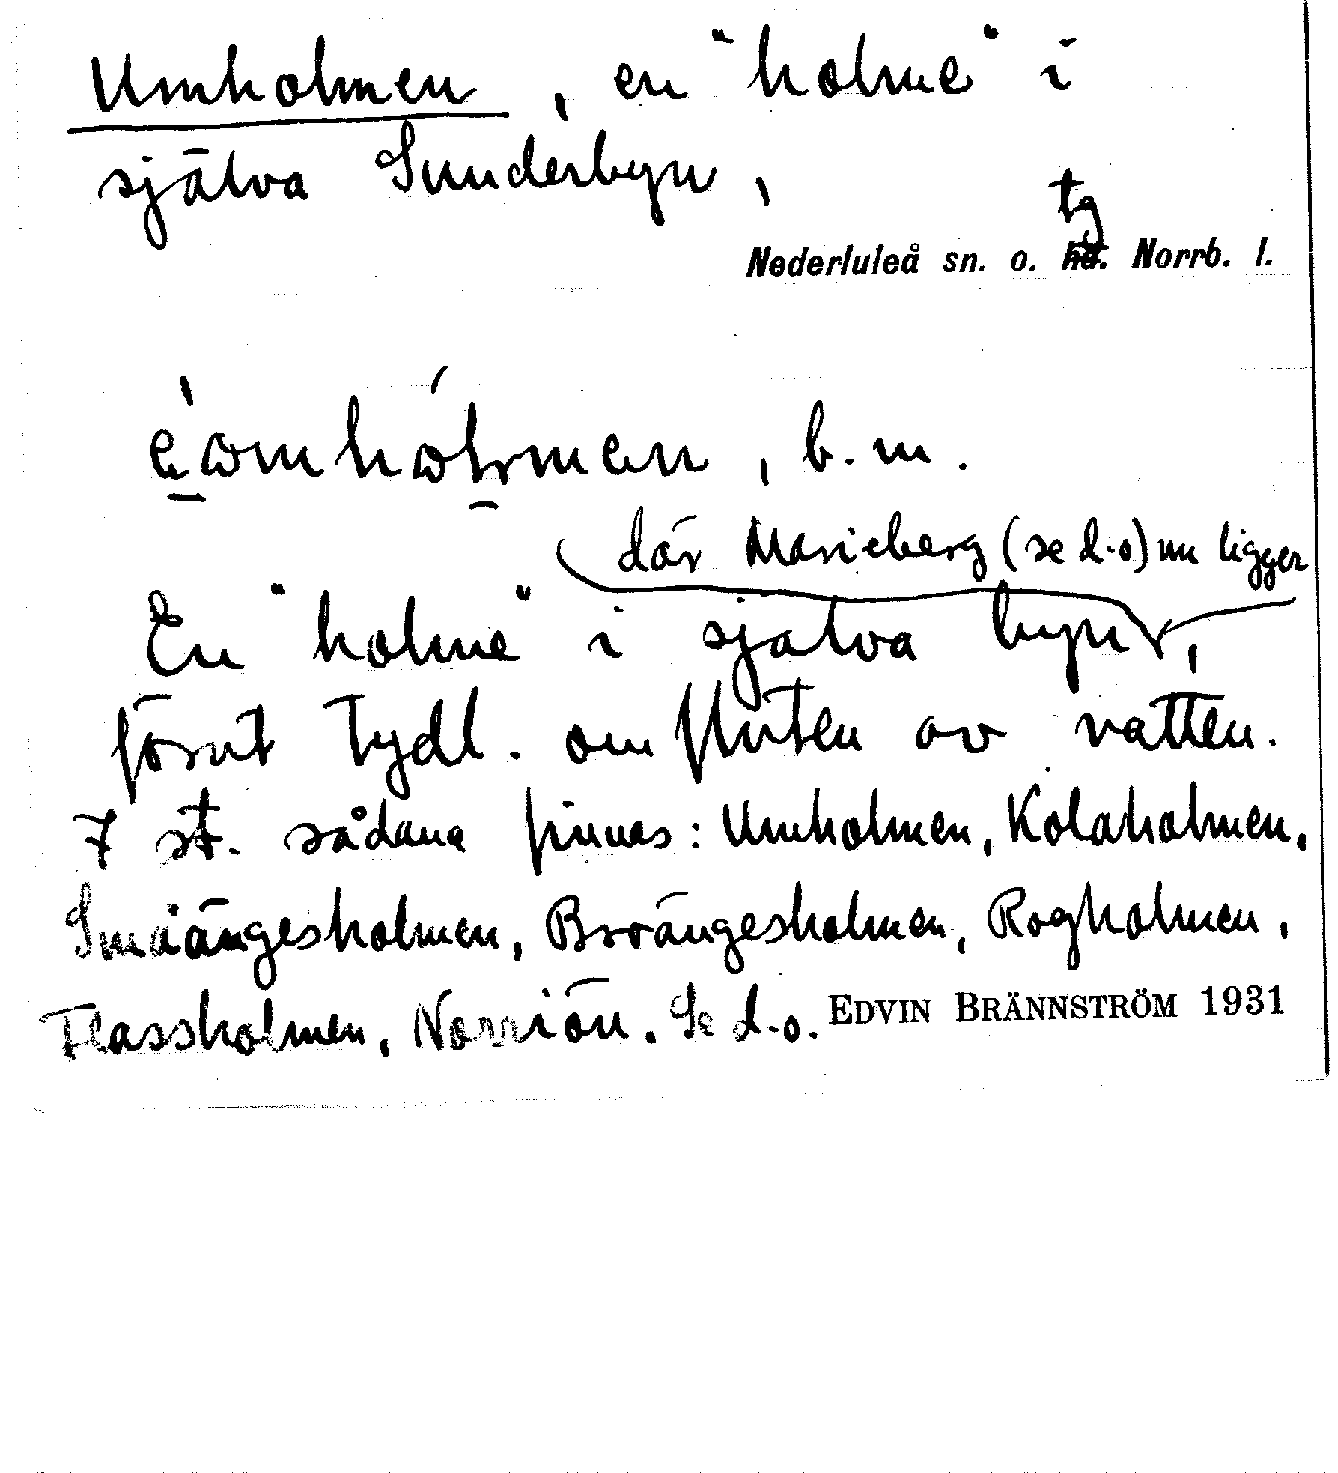 Umholmen, en "holme" i
själva Sunderbyn,
tg
Nederluleå sn. o. hd. Norrb. l.
b. m.
där Marieberg (se d.o) nu ligger
En "holme" i själva byn,
förut tydl. omfluten av vatten.
7 st. sådana finnas: Umholmen, Kolaholmen,
Småängesholmen, Brrängesholmen, Rogholmen,
Flassholmen, Norriön. Se d.o. EDVIN BRÄNNSTRÖM 1931